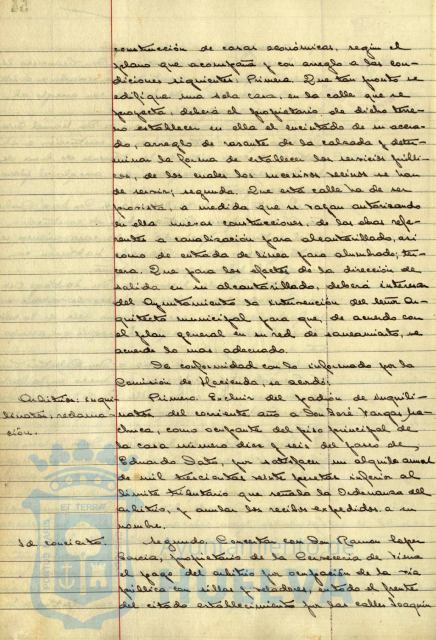 construcción de casas económicas, según el
plano que acompaña y con arreglo a las con-
diciones siguientes: Primera. Que tan pronto se
edifique una sola casa, en la calle que se
proyecta, deberá el propietario de dicho terre-
no establecer en ella el encintado de su acera-
do, arreglo de rasante de la calzada y deter-
minar la forma de establecer los servicios públi-
cos, de los cuales los sucesivos vecinos se han
de servir; segunda. Que esta calle ha de ser
provista, a medida que se vayan autorizando
en ella nuevas construcciones, de las obras refe-
rentes a canalización para alcantarillado, así
como de entrada de línea para alumbrado; ter-
cera. Que para los efectos de la dirección de
salida en su alcantarillado, deberá interesar
del Ayuntamiento la intervención del señor Ar-
quitecto municipal para que, de acuerdo con
el plan general en su red de saneamiento, se
acuerde lo mas adecuado.
De conformidad con lo informado por la
Comisión de Hacienda, se acordó:
Arbitrios: inqui-
linatos, reclama-
ción.
Primero. Excluir del padrón de inquili-
natos del corriente año a Don José Vargas Ma-
chuca, como ocupante del piso principal de
la casa número diez y seis del paseo de
Eduardo Dato, por satisfacer un alquiler anual
de mil trescientas veinte pesetas inferior al
límite tributario que señala la Ordenanza del
arbitrio, y anular los recibos expedidos a su
nombre.
Id. concierto.
Segundo. Concertar con Don Ramon Lopez
Garcia, propietario de la Cerveceria de Viena
el pago del arbitrio por ocupación de la via
pública con sillas y veladores, en todo el frente
del citado establecimiento por las calles Joaquin